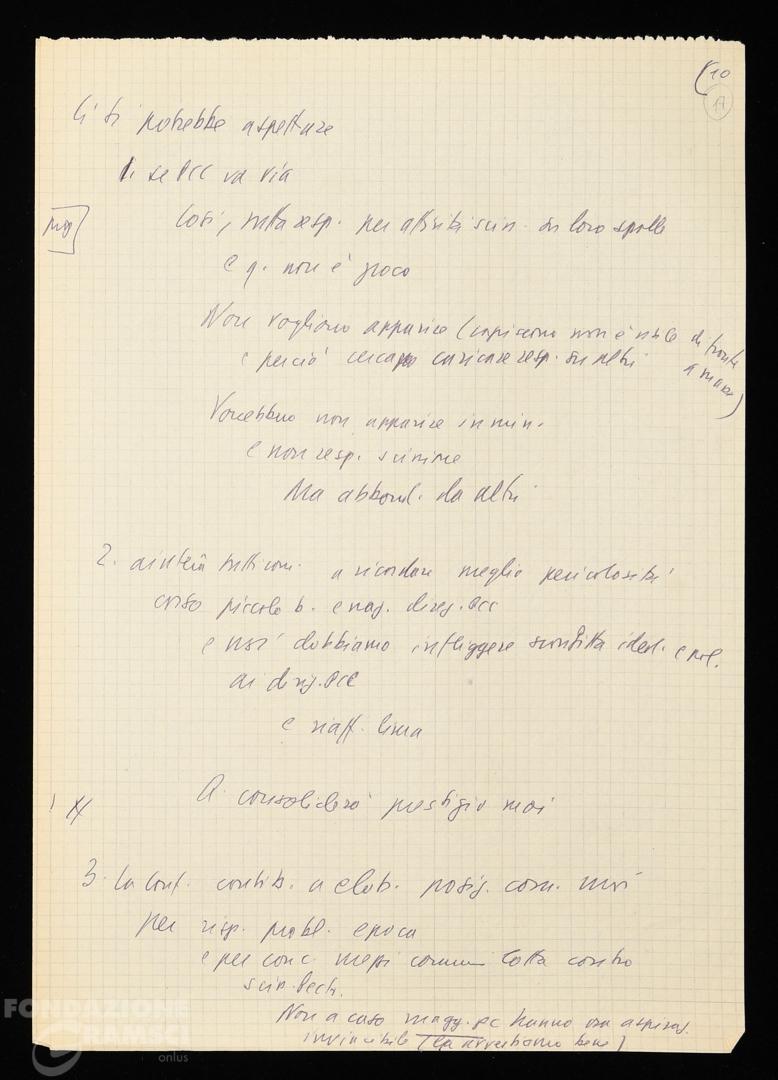 10
17
Ci si potrebbe aspettare
1. se PCC va via
Così, tutta resp. per attività sciss. su loro spalle
e q. non è poco
Non vogliono apparire (capiscono non è utile di fronte
a masse)
e perciò cercano caricare resp. su altri
Vorrebbero non apparire in min.
e non resp. scissione
Ma abband. da altri
2. aiuterà tutti com. a ricordare meglio pericolosità
corso piccolo b. e naz. direz. PCC
e noi dobbiamo infliggere sconfitta ideol. e pol.
ai dirig. PCC
e riaff. linea
! A consoliderà prestigio noi
3. La Conf. contrib. a elab. posiz. com. noi
per risp. probl. epoca
e per conc. mezzi comuni lotta contro
sciss. Pech.
Non a caso magg. pc hanno ora aspiraz.
invincibile (la avvertiamo bene)
FONDAZIONE
GRAMSCI
onlus